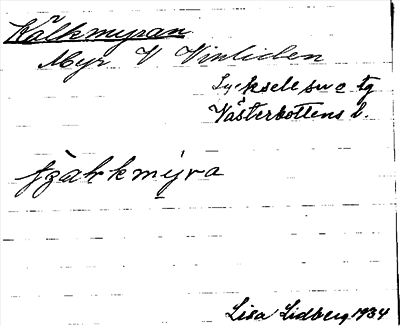 Kälkmyran
Myr V Vinliden
Lycksele sn e tg
Västerbottens l.
Lisa Lidberg 1934